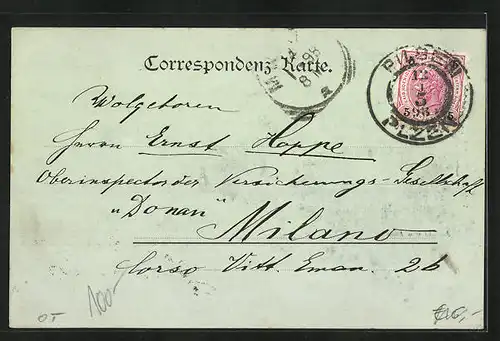 Correspondenz-Karte.
PILSEN
PLZEŇ
Wolgeboren
Herrn Ernst Hoppe
Oberinspector der Versicherungs-Gesellschaft
"Donau"
Milano
Corso Vitt. Eman. 26
100-
OT